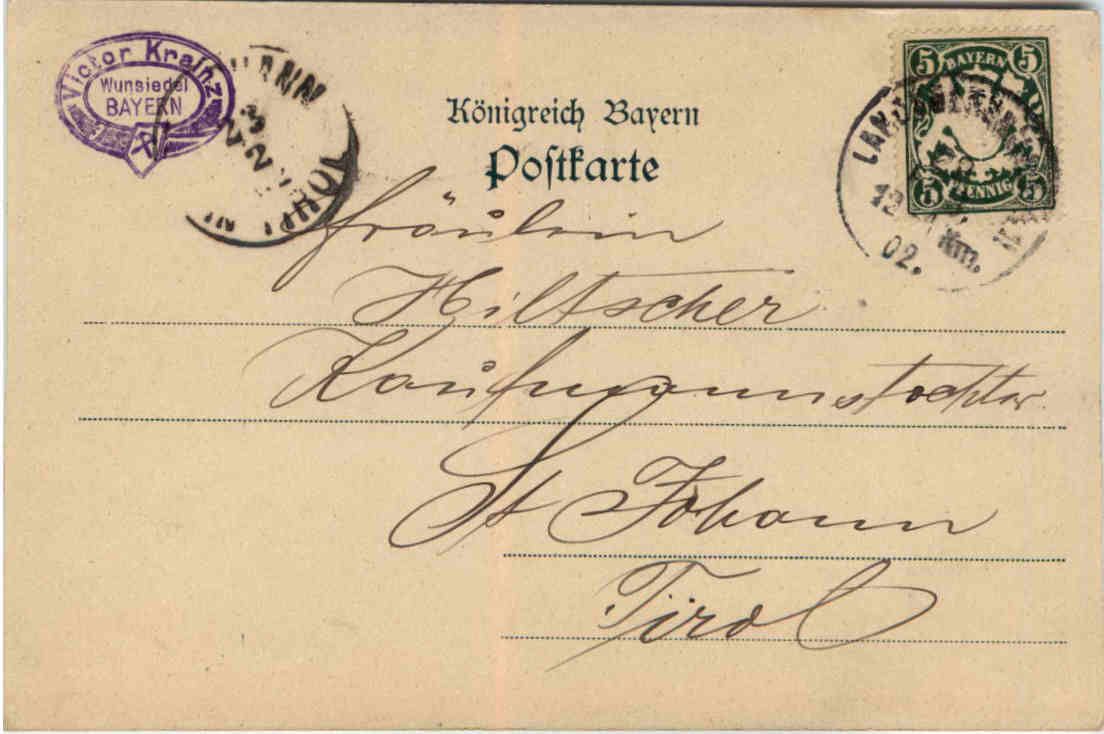 Victor Krainz
Wunsiedel
BAYERN
Königreich Bayern
Postkarte
5 BAYERN 5
5 PFENNIG 5
12
02.
Km.
Fräulein
Hiltscher
Kaufmannstochter
St Johann
Tirol